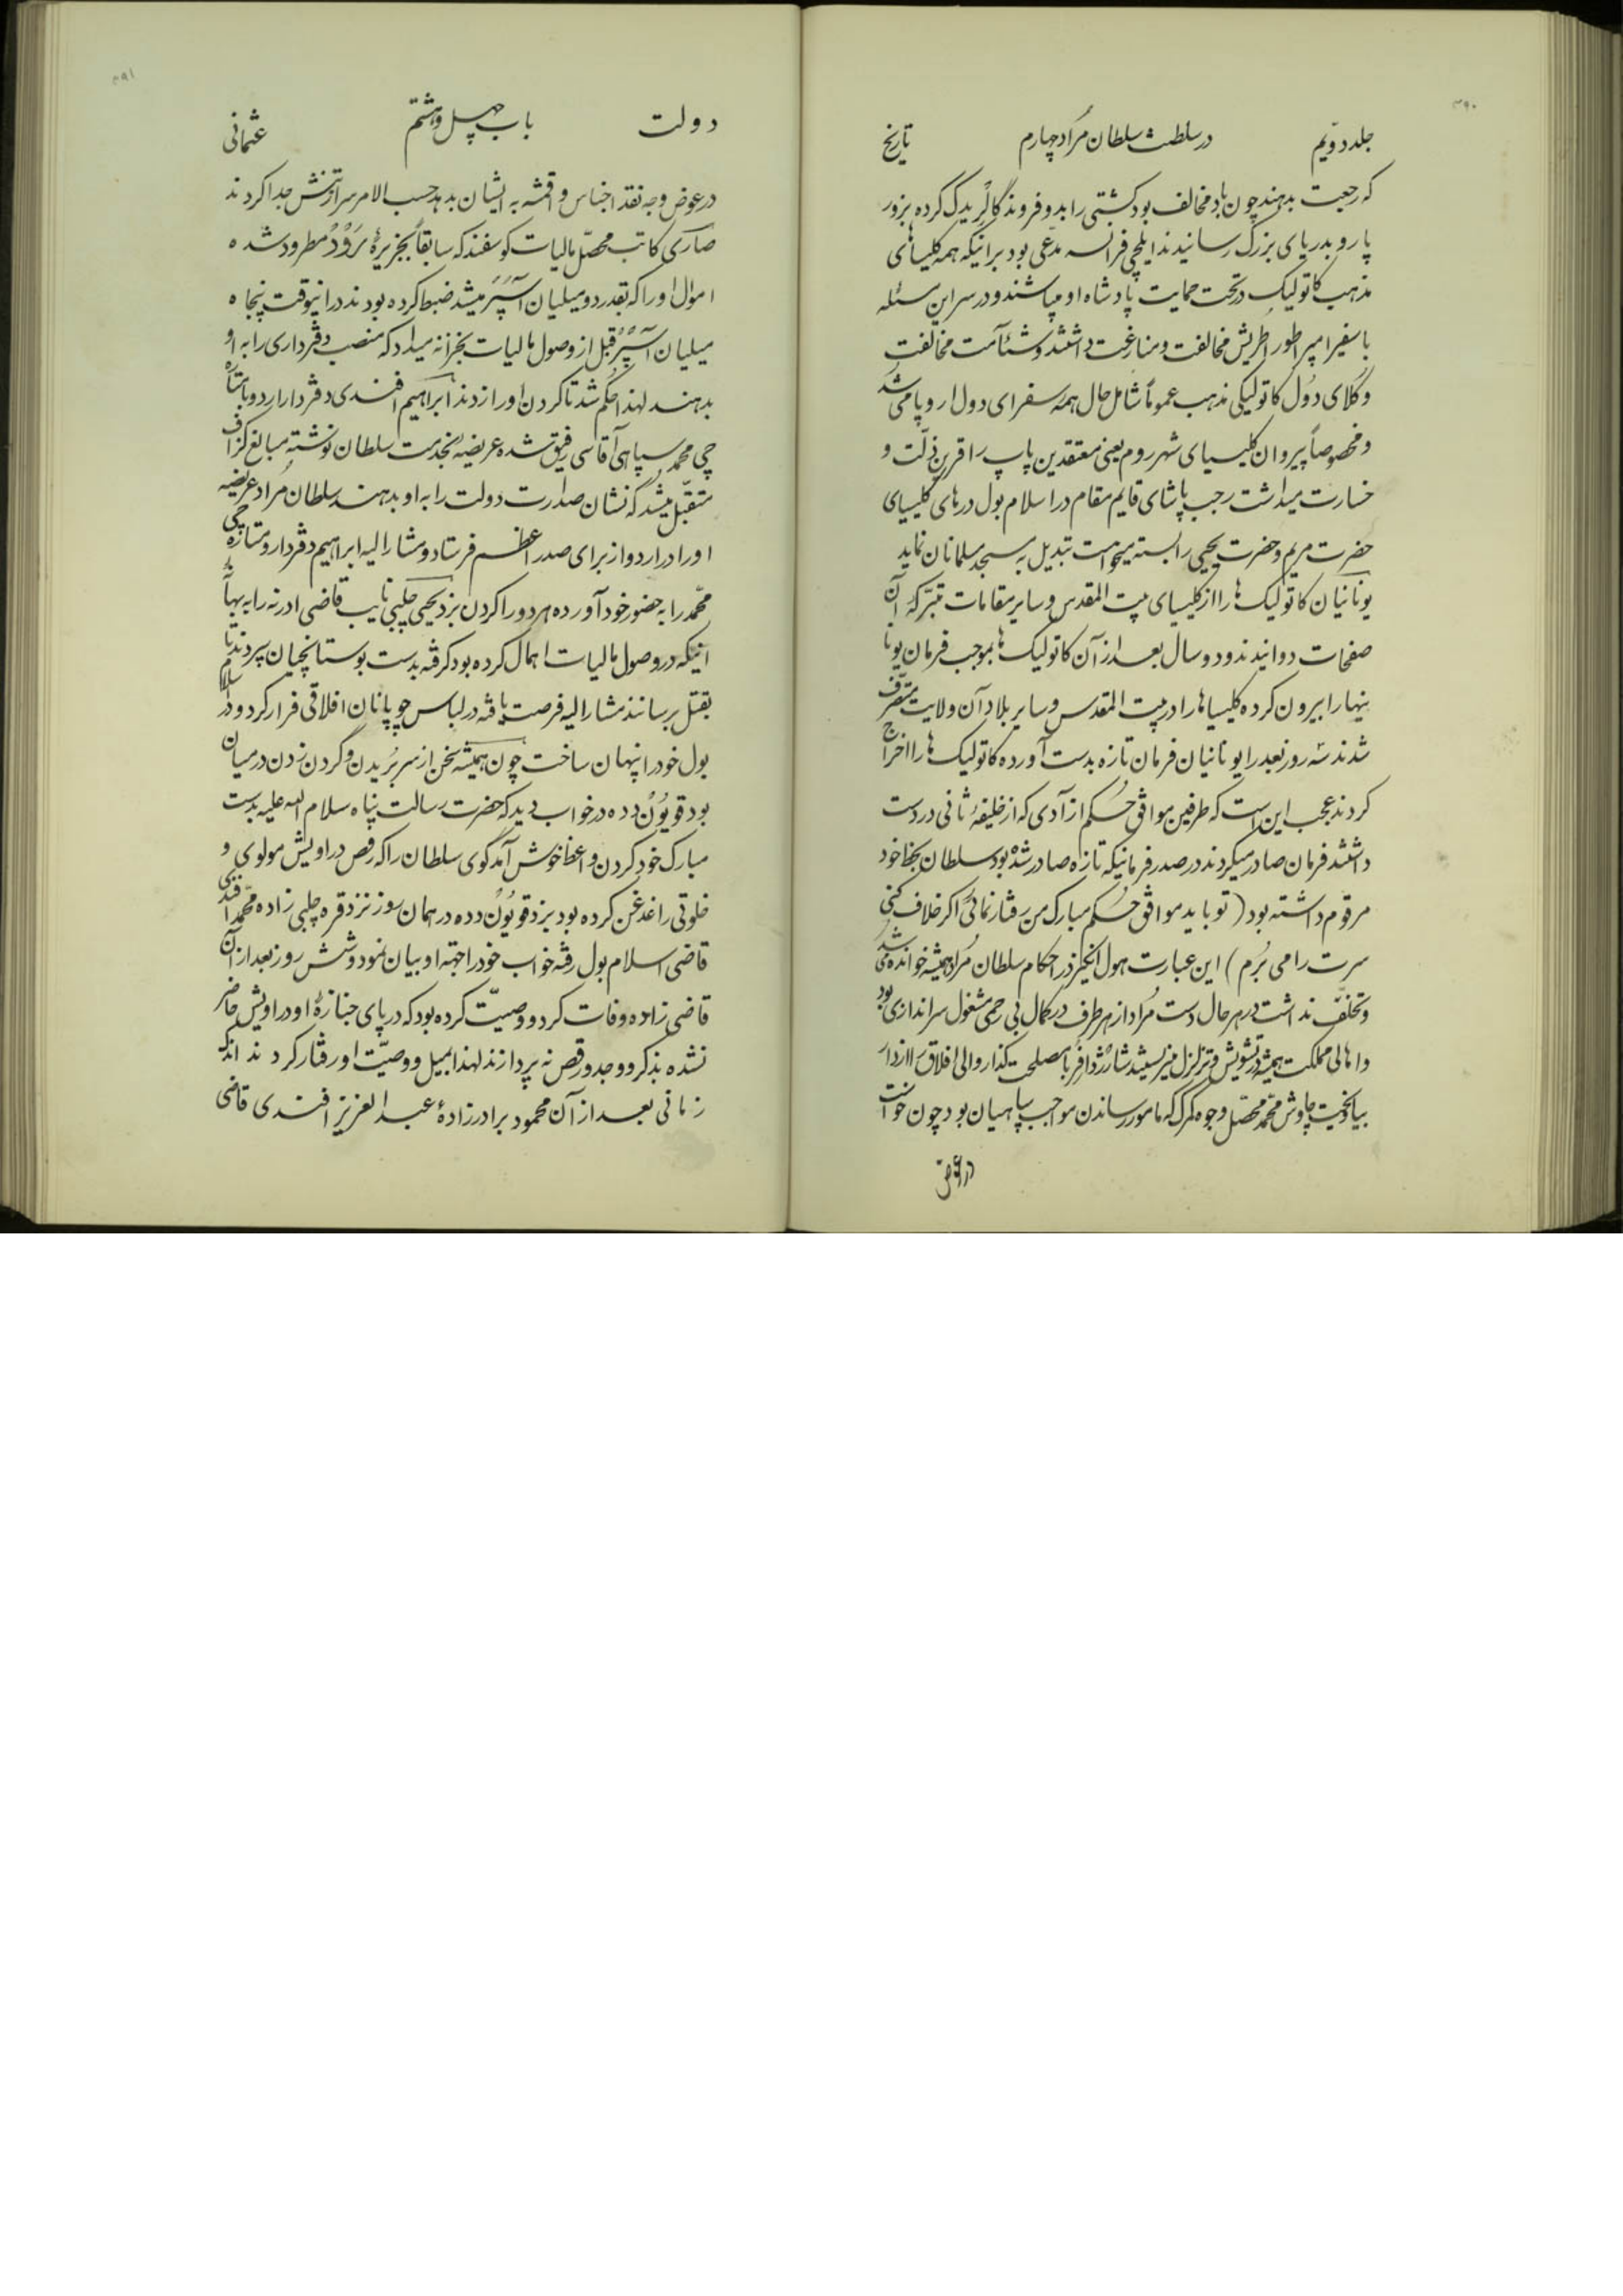 ۳۹۰
جلد دویم در سلطنت سلطان مراد چهارم تاریخ
که رجعت بدهند چون باد مخالف بود کشتی را بدو فروند گالر یدک کرده بزور
پارو بدریای بزرگ رسانیدند ایلچی فرانسه مدعی بود بر اینکه همه کلیساهای
مذهب کاتولیک در تحت حمایت پادشاه او میباشند و در سر این مسئله
با سفیر امپراطور اطریش مخالفت و منازعت داشتند و شئآمت مخالفت
وکلای دول کاتولیکی مذهب عموماً شامل حال همه سفرای دول اروپا می شد
و مخصوصاً پیروان کلیسیای شهر روم یعنی معتقدین پاپ را قرین ذلت و
خسارت میداشت رجب پاشای قایم مقام در اسلامبول درهای کلیسیای
حضرت مریم و حضرت یحیی را بسته میخواست تبدیل به مسجد مسلمانان نماید
یونانیان کاتولیک ها را از کلیسای بیت المقدس و سایر مقامات متبرکه آن
صفحات دوانیدند و دو سال بعد از آن کاتولیک ها بموجب فرمان یونا
نیها را بیرون کرده کلیساها را در بیت المقدس و سایر بلاد آن ولایت متصرف
شدند سه روز بعد را یونانیان فرمان تازه بدست آورده کاتولیک ها را اخراج
کردند عجب این است که طرفین موافق حکم از آدی که از خلیفۀ ثانی در دست
داشتند فرمان صادر میکردند در صدر فرمانیکه تازه صادر شده بود سلطان بخط خود
مرقوم داشته بود (تو باید موافق حکم مبارک من رفتار نمائی اگر خلاف کنی
سرت را می بُرم) این عبارت هول انگیز در احکام سلطان مراد همیشه خوانده می شد
و تخلف نداشت در هر حال دست مراد از هر طرف در کمال بی رحمی مشغول سراندازی بود
و اهالی مملکت همیشه در تشویش و تزلزل میزیستند شارژدافر با مصلحت گذار والی افلاق را از دار
بیاویخت چاوش محمد محصل وجوه گمرک که مامور رساندن مواجب سپاهیان بود چون خواست
در عوض
۳۹۱
دولت باب چهل و هشتم عثمانی
در عوض وجه نقد اجناس و اقمشه به ایشان بدهد حسب الامر سر از تنش جدا کردند
صاری کاتب محصل مالیات گوسفند که سابقاً بجزیرۀ رودُ مطرود شده
اموال او را که بقدر دو میلیان آسپر میشد ضبط کرده بودند در انیوقت پنجاه
میلیان آسپر قبل از وصول مالیات بخزانه میداد که منصب دفترداری را به او
بدهند لهذا حکم شد تا گردن او را زدند ابراهیم افندی دفتردار اردو با شاره
چی محمد سپاهی آقاسی رفیق شده عریضۀ بخدمت سلطان نوشته مبالغ گزاف
متقبل میشد که نشان صدارت دولت را به او بدهند سلطان مراد عریضه
او را در اردو از برای صدر اعظم فرستاد و مشارالیه ابراهیم دفتردار و شاره چی
محمد را به حضور خود آورده هر دو را گردن بزد یحیی چلبی نایب قاضی ادرنه را به بهانۀ
اینکه در وصول مالیات اهمال کرده بود گرفته بدست بوستانجیان سپردند تا
بقتل برسانند مشارالیه فرصت یافته در لباس چوپانان افلاقی فرار کرد و در اسلام
بول خود را پنهان ساخت چون همیشه سخن از سر بریدن و گردن زدن در میان
بود قویون دده در خواب دید که حضرت رسالت پناه سلام الله علیه بدست
مبارک خود گردن واعظ خوش آمدگوی سلطان را که رقص دراویش مولوی و
خلوتی را غدغن کرده بود بزد قویون دده در همان روز نزد قره چلبی زاده محمد افندی
قاضی اسلامبول رفته خواب خود را بجهته او بیان نمود و شش روز بعد از آن
قاضی زاده وفات کرد و وصیت کرده بود که در پای جنازۀ او دراویش حاضر
نشده بذکر و وجد و رقص نه پردازند لهذا بمیل و وصیت او رفتار کردند اندک
زمانی بعد از آن محمود برادرزادۀ عبدالعزیز افندی قاضی